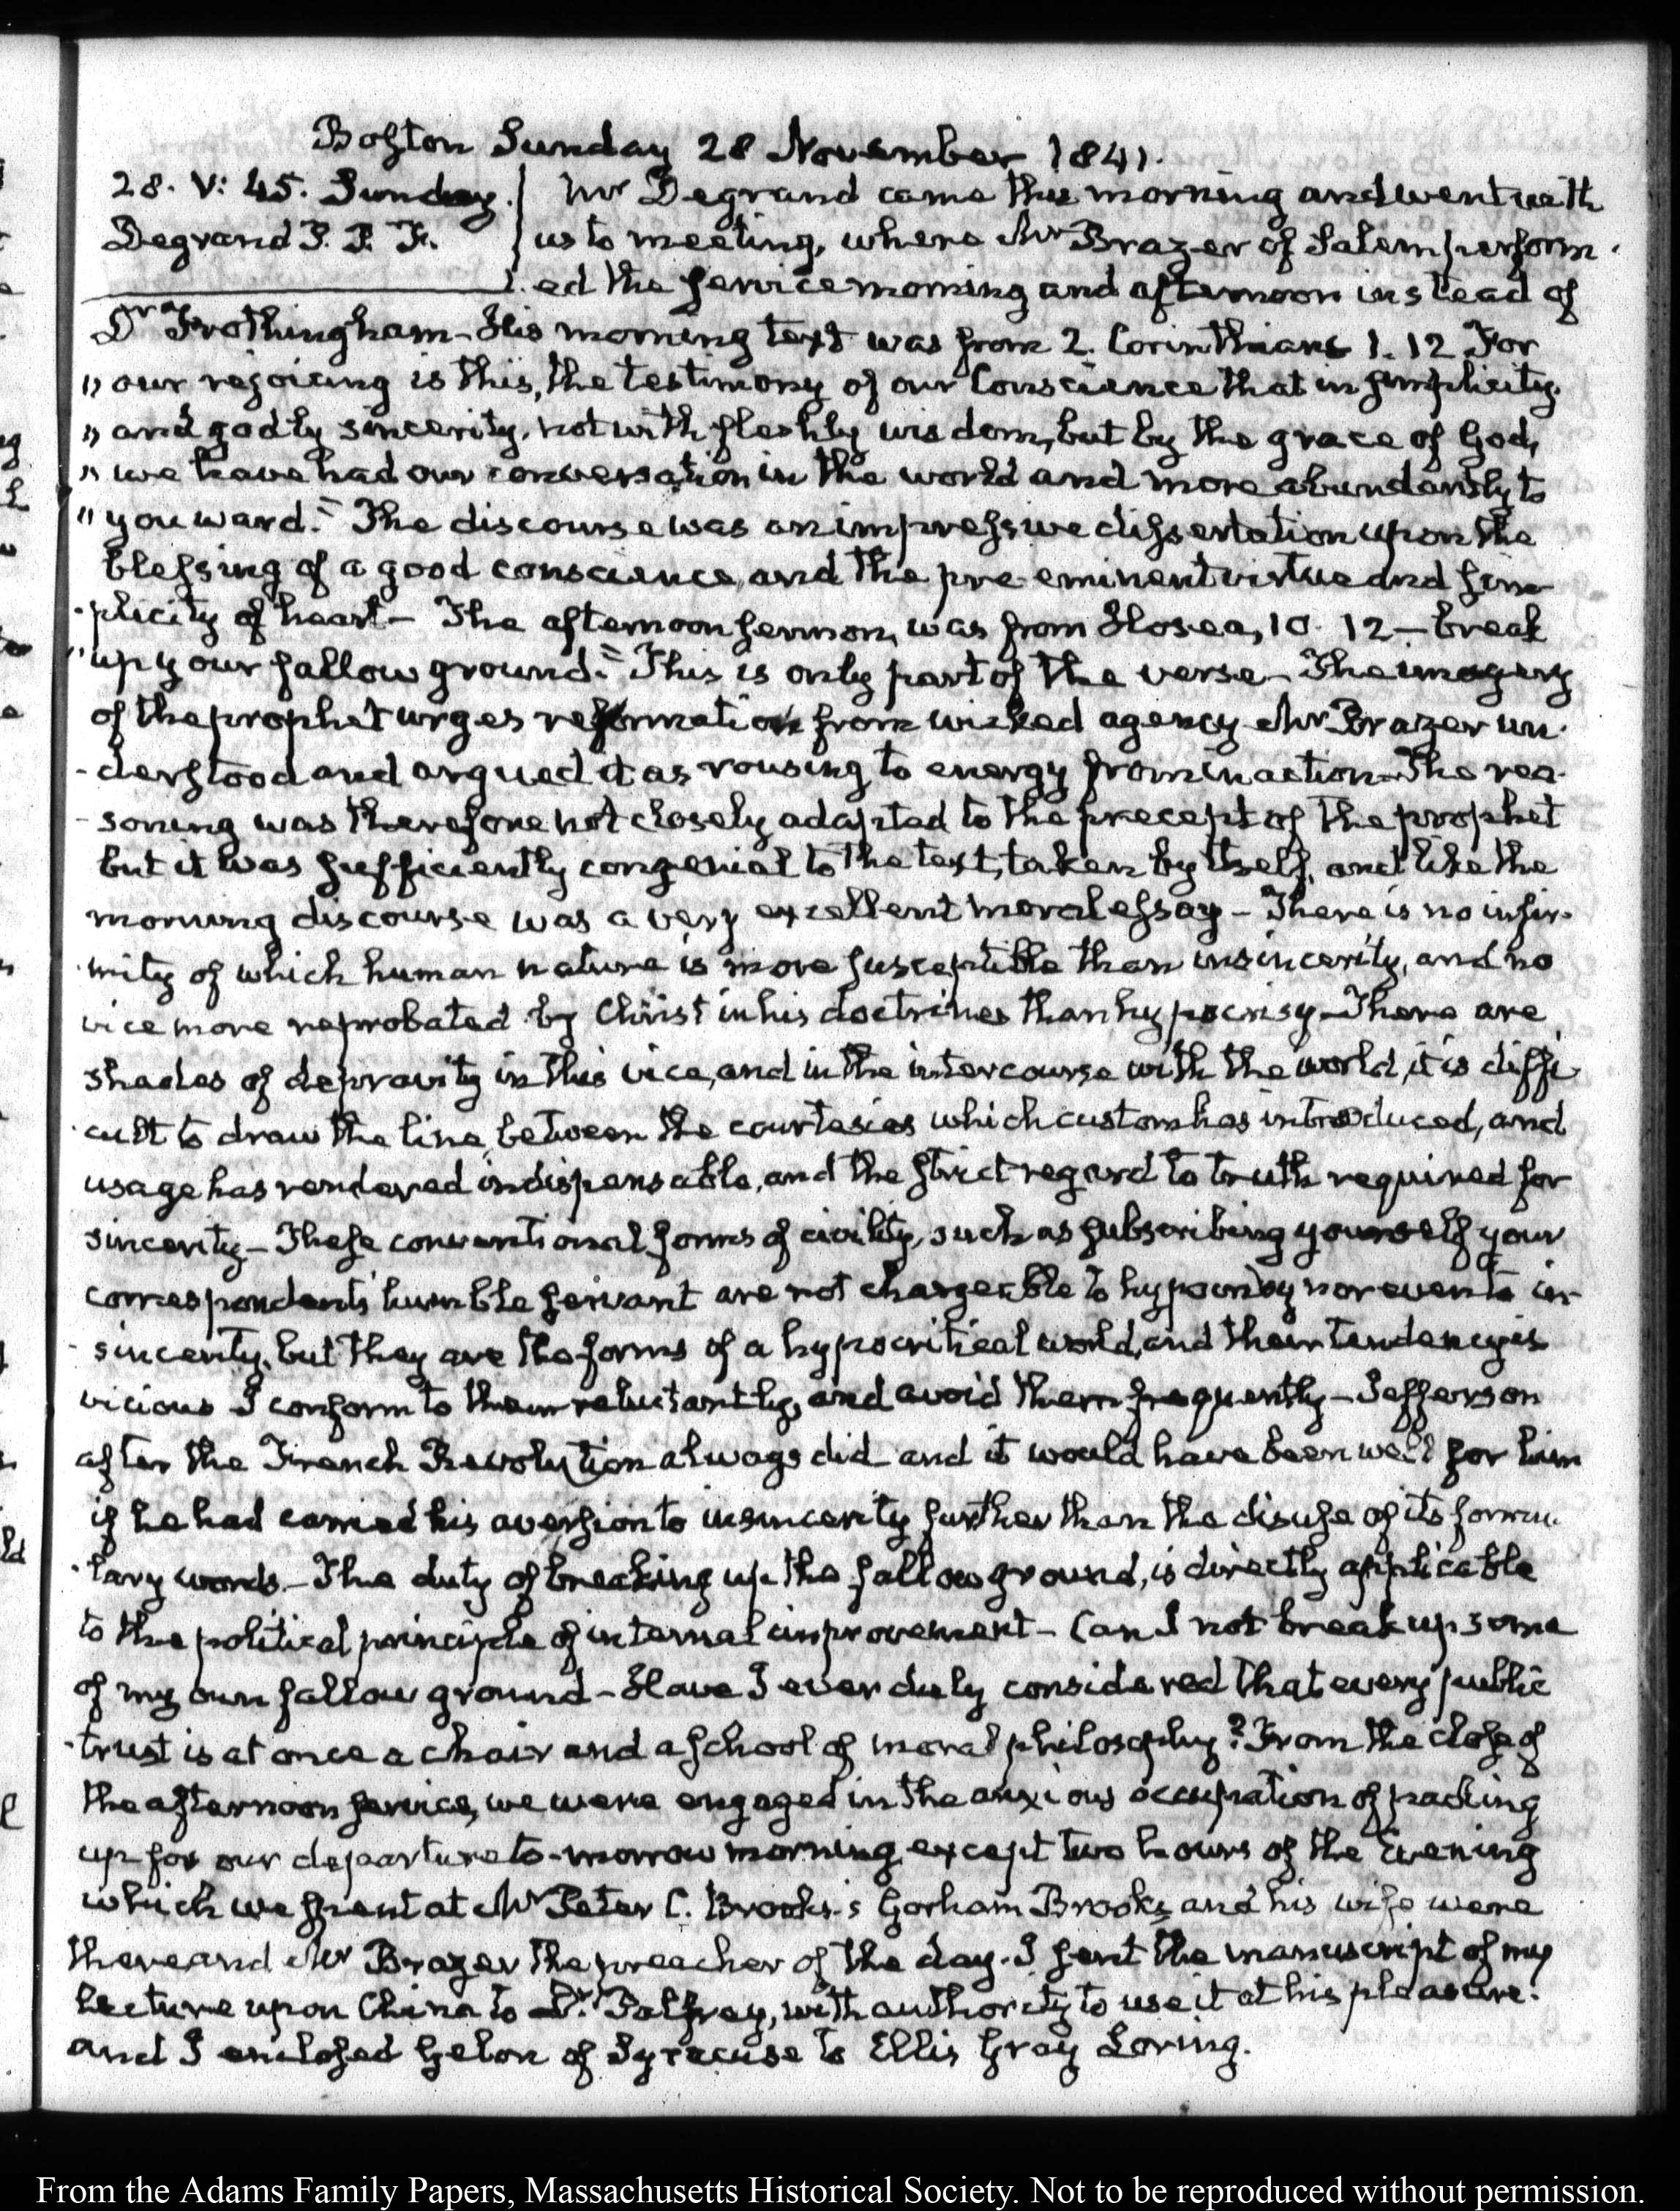 Boston Sunday 28 November 1841.
28. V: 45. Sunday.
Degrand P. P. F.
Mr Degrand came this morning and went with
us to meeting, where Mr Brazer of Salem perform-
-ed the service morning and afternoon instead of
Dr Frothingham - His morning text was from 2. Corinthians 1. 12 For
" our rejoicing is this, the testimony of our Conscience that in simplicity,
" and godly sincerity, not with fleshly wisdom, but by the grace of God,
" we have had our conversation in the world and more abundantly to
" you ward." The discourse was an impressive dissertation upon the
blessing of a good conscience, and the pre-eminent virtue and sim-
-plicity of heart - The afternoon sermon, was from Hosea, 10. 12 - break
" up your fallow ground." This is only part of the verse - The imagery
of the prophet urges reformation from wicked agency Mr Brazer un-
-derstood and argued it as rousing to energy from inaction - The rea-
-soning was therefore not closely adapted to the precept of the prophet
but it was sufficiently congenial to the text, taken by itself, and like the
morning discourse was a very excellent moral essay - There is no infir-
-mity of which human nature is more susceptible than insincerity, and no
vice more reprobated by Christ in his doctrines than hypocrisy - There are
shades of depravity in this vice, and in the intercourse with the world, it is diffi-
-cult to draw the line, between the courtesies which custom has introduced, and
usage has rendered indispensable, and the strict regard to truth required for
sincerity - These conventional forms of civility, such as subscribing yourself your
correspondents' humble servant are not chargeable to hypocrisy nor even to in-
-sincerity, but they are the forms of a hypocritical world, and their tendency is
vicious I conform to them reluctantly, and avoid them frequently - Jefferson
after the French Revolution always did and it would have been well for him
if he had carried his aversion to insincerity further than the disuse of its formu-
-lary words - The duty of breaking up the fallow ground, is directly applicable
to the political principle of internal improvement - Can I not break up some
of my own fallow ground - Have I ever duly considered that every public
trust is at once a chair and a school of moral philosophy? From the close of
the afternoon service, we were engaged in the anxious occupation of packing
up for our departure to-morrow morning, except two hours of the Evening
which we spent at Mr Peter C. Brooks's Gorham Brooks and his wife were
there and Mr Brazer the preacher of the day. I sent the manuscript of my
Lecture upon China to Dr. Palfrey, with authority to use it at his pleasure.
and I enclosed Gelon of Syracuse to Ellis Gray Loring.
From the Adams Family Papers, Massachusetts Historical Society. Not to be reproduced without permission.